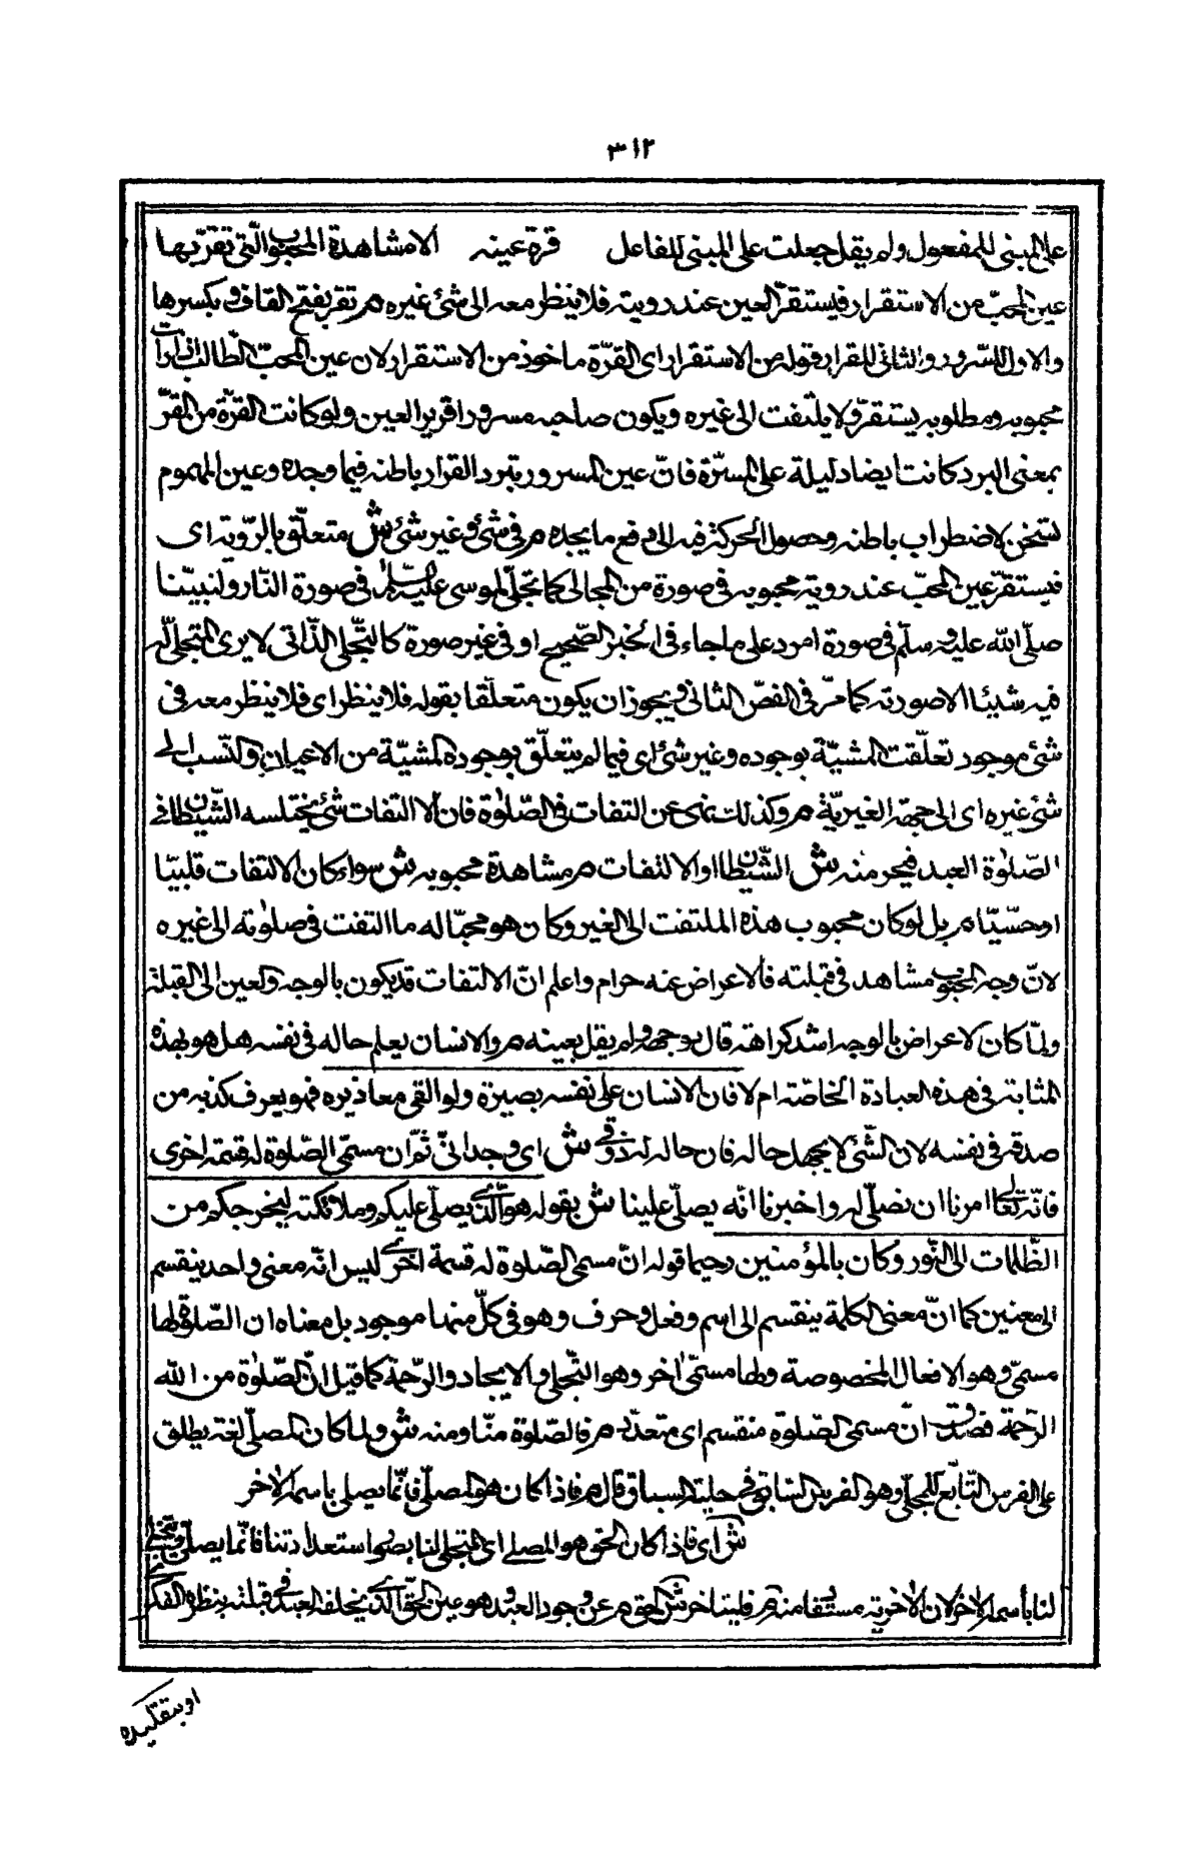 ٣١٢
على المبنى للمفعول ولم يقل جعلت على المبنى للفاعل قرة عينه الا مشاهدة المحبوب التى تقرّ بها
عين المحبّ من الاستقرار فيستقرّ العين عند رويته فلا ينظر معه الى شئ غيره م تقر بفتح القاف وبكسرها
والاول للسّرور والثانى للقرار وقوله من الاستقرار اى القرّة ماخوذ من الاستقرار لان عين المحبّ الطّالب اذا رأت
محبوبه ومطلوبه يستقرّ ولا يلتفت الى غيره ويكون صاحبه مسرورا قرير العين ولو كانت القرّة من القرّ
بمعنى البرد كانت ايضا دليلة على المسرّة فانّ عين المسرور تبرد القرار باطنه فيما وجده وعين المهموم
تسخن لاضطراب باطنه وحصول الحركة فيه الى دفع ما يجده م فى شئ وغير شئ ش متعلّق بالرّوية اى
فيستقرّ عين المحبّ عند روية محبوبه فى صورة من المجالى كما تجلّى لموسى عليه السلم فى صورة النّار ولنبيّنا
صلّى الله عليه وسلّم فى صورة امرد على ما جاء فى الخبر الصّحيح او فى غير صورة كالتّجلى الذّاتى لا يرى المتجلّى له
فيه شيئا الا صورته كما مرّ فى الفصّ الثانى ويجوز ان يكون متعلّقا بقوله فلا ينظر اى فلا ينظر معه فى
شئ موجود تعلّقت المشيّة بوجوده وغير شئ اى فيما لم يتعلّق بوجوده المشيّة من الاعيان والنّسب الى
شئ غيره اى الى جهة الغيريّة م وكذلك نهى عن التفات فى الصّلوة فان الالتفات شئ يختلسه الشّيطان فى
الصّلوة العبد فيحرمنه ش الشّيطان او الالتفات م مشاهدة محبوبه ش سواء كان الالتفات قلبيّا
او حسّيّا م بل لو كان محبوب هذه الملتفت الى الغير وكان هو محبّا له ما التفت فى صلوته الى غيره
لانّ وجه المحبوب مشاهد فى قبلته فالاعراض عنه حرام واعلم انّ الالتفات قد يكون بالوجه والعين الى القبلة
ولمّا كان الاعراض بالوجه اشد كراهة قال بوجهه ولم يقل بعينه م والانسان يعلم حاله فى نفسه هل هو بهذه
المثابة فى هذه العبادة الخاصّة ام لا فان الانسان على نفسه بصيرة ولو القى معاذيره فهو يعرف كذبه من
صدقه فى نفسه لان الشّئ لا يجهل حاله فان حاله له ذوقى ش اى وجدانىّ ثمّ ان مسمّى الصّلوة له قسمة اخرى
فانّه تعالى امرنا ان نصلّى له واخبرنا انّه يصلّى علينا ش بقوله هو الّذى يصلّى عليكم وملائكته ليخرجكم من
الظّلمات الى النّور وكان بالمؤمنين رحيما قوله انّ مسمى الصّلوة له قسمة اخرى ليس انّه معنى واحد ينقسم
الى معنين كما انّ معنى الكلمة ينقسم الى اسم وفعل وحرف وهو فى كلّ منها موجود بل معناه ان الصّلوة لها
مسمّى وهو الافعال المخصوصة ولها مسمّى اخر وهو التّجلى والايجاد والرّحمة كما قيل انّ الصّلوة من الله
الرّحمة فصدق انّ مسمى الصّلوة منقسم اى متعدّد م فالصّلوة منّا ومنه ش ولما كان المصلّى لغة يطلق
على الفرس التّابع للمجلّى وهو الفرس السّابق فى حلبة السباق قال م فاذا كان هو المصلّى فانّما يصلى باسمه الاخر
ش اى فاذا كان الحق هو المصلى اى المتجلى لنا بصور استعداد تنا فانّما يصلّى ويتجلّى
لنا باسمه الاخر لان الاخرية مستفا منه م فليتاخر ش الحق م عن وجود العبد وهو عين الحقّ الّذى يخلقه العبد فى قبلته بنظره الفكرى
او بتقليده